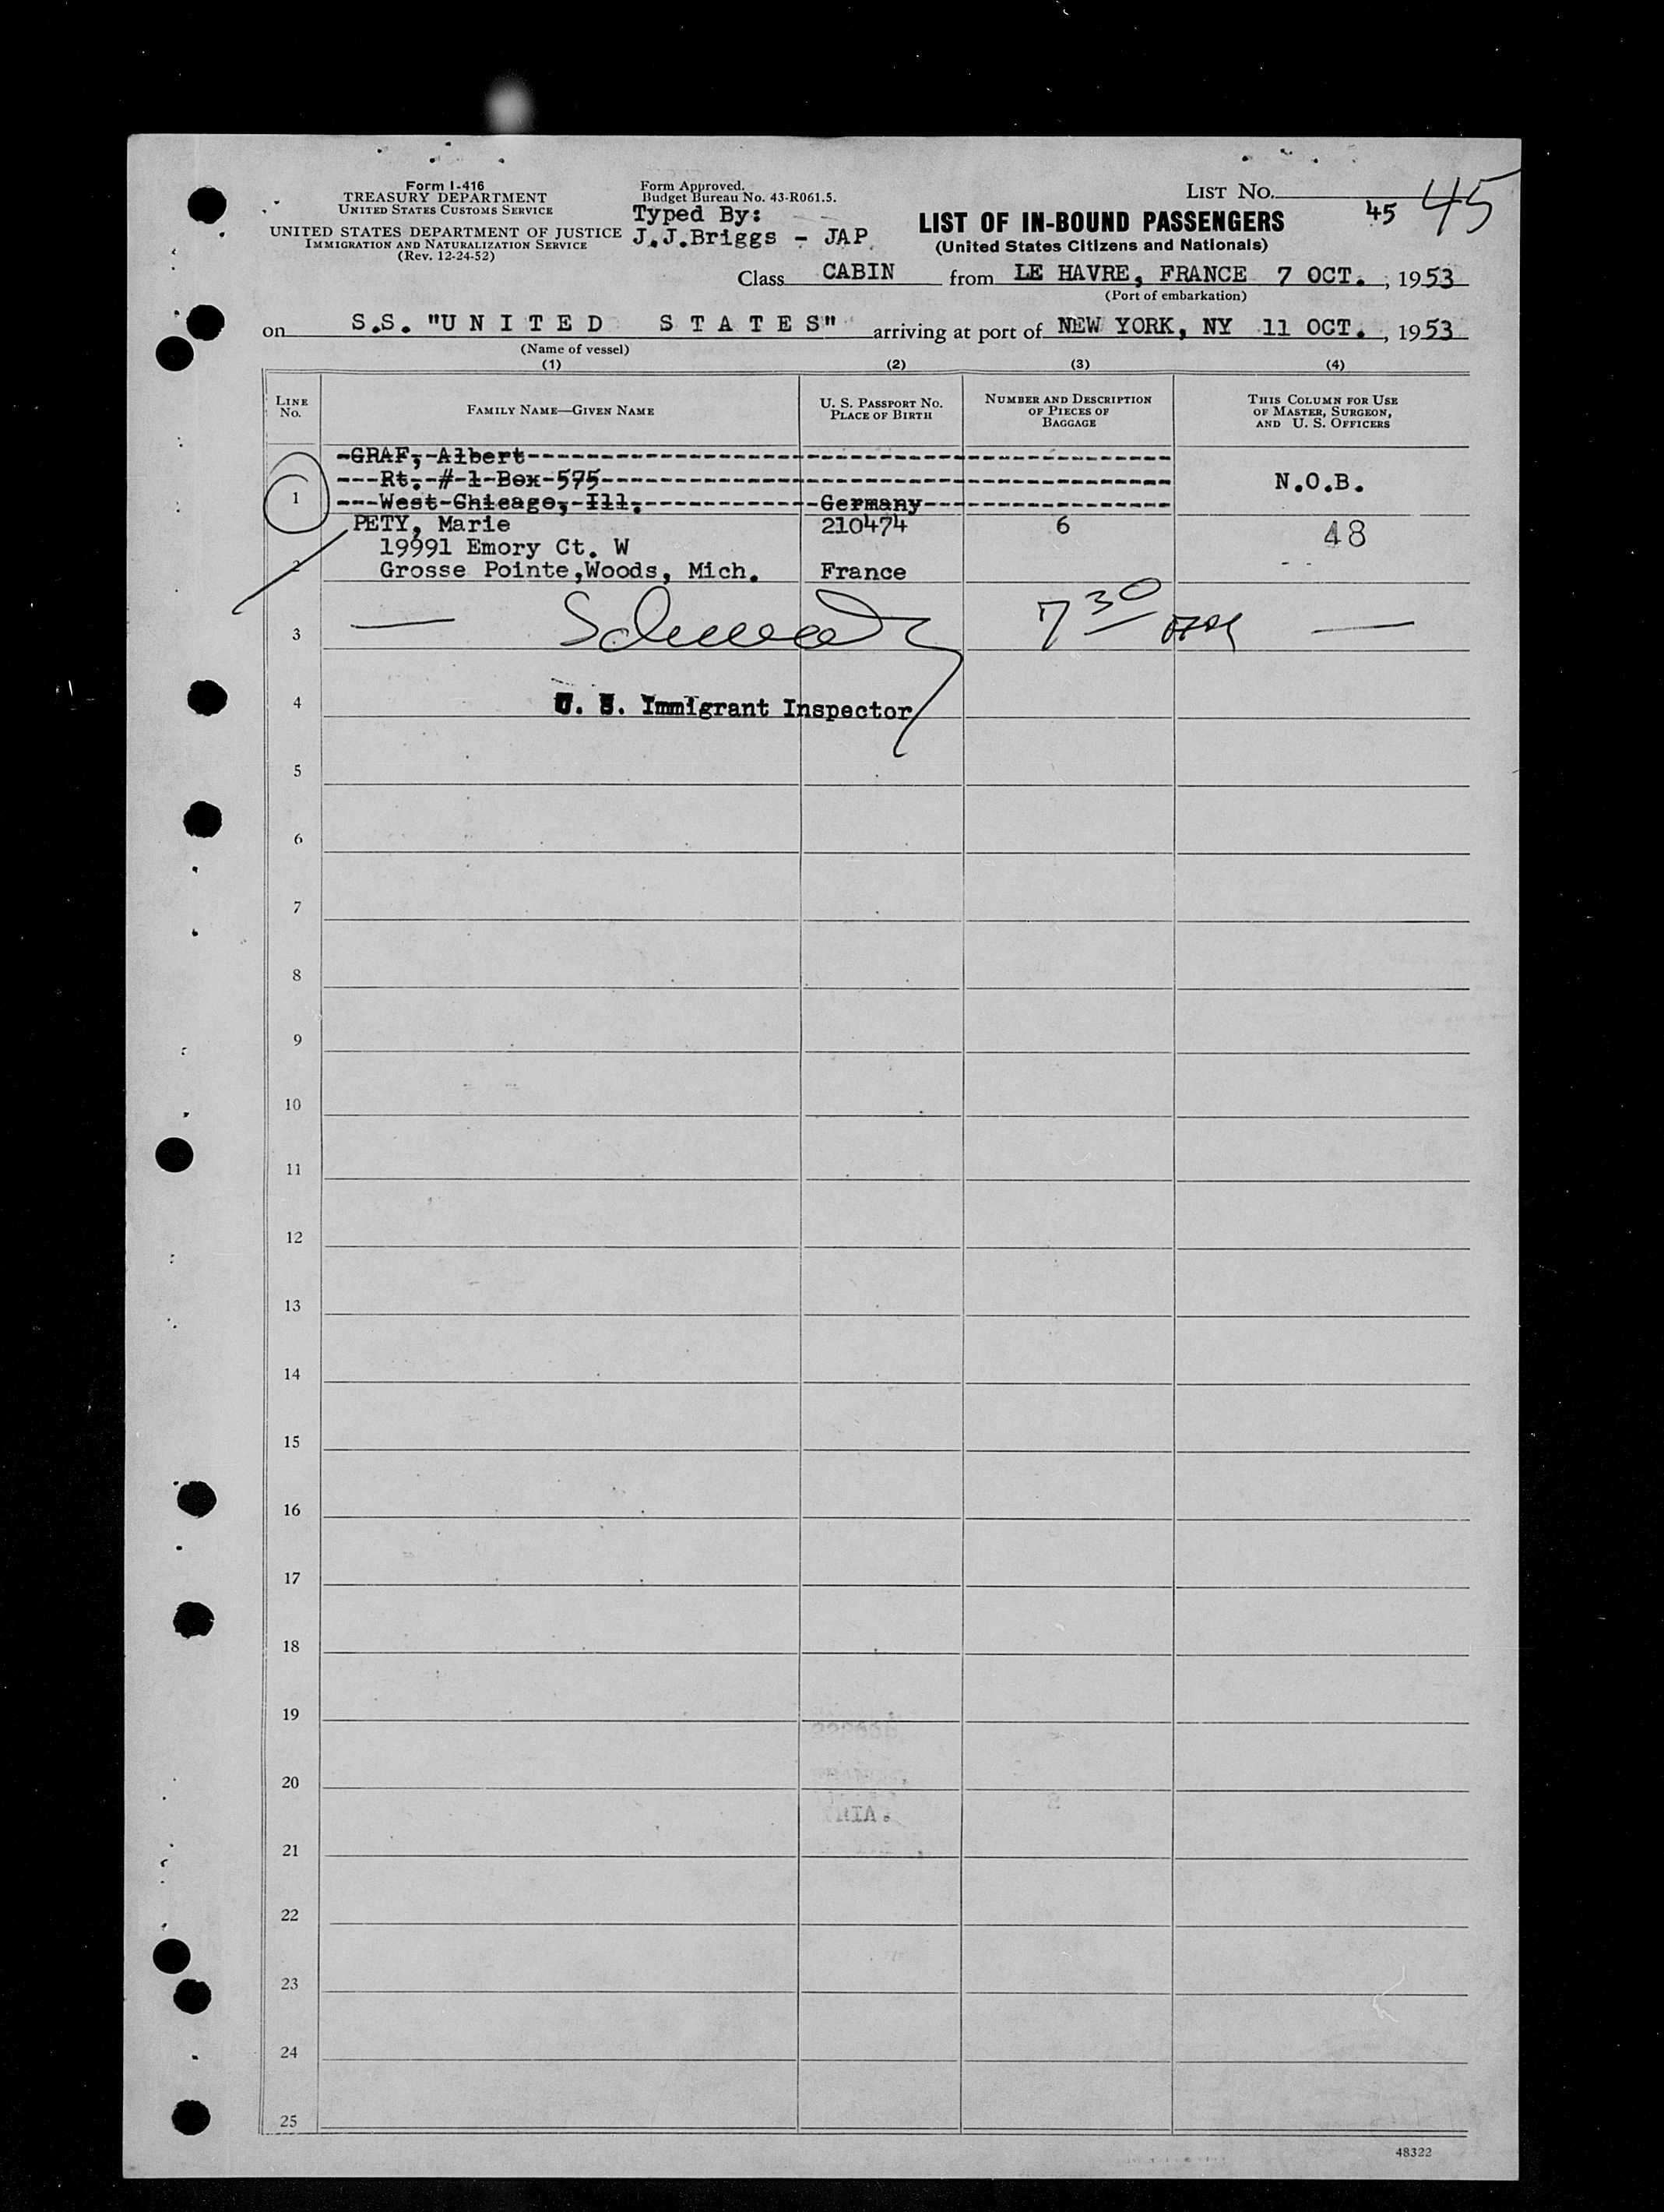 Form I-416
TREASURY DEPARTMENT
UNITED STATES CUSTOMS SERVICE
UNITED STATES DEPARTMENT OF JUSTICE
IMMIGRATION AND NATURALIZATION SERVICE
(Rev. 12-24-52)
Form Approved.
Budget Bureau No. 43-R061.5.
Typed By:
J.J.Briggs - JAP
LIST NO.
45 45
LIST OF IN-BOUND PASSENGERS
(United States Citizens and Nationals)
Class CABIN from LE HAVRE, FRANCE 7 OCT. , 1953
(Port of embarkation)
on S.S. "U N I T E D S T A T E S" arriving at port of NEW YORK, NY 11 OCT. , 1953
(Name of vessel)
(1) (2) (3) (4)
LINE NO.
FAMILY NAME—GIVEN NAME
U. S. PASSPORT NO.
PLACE OF BIRTH
NUMBER AND DESCRIPTION
OF PIECES OF
BAGGAGE
THIS COLUMN FOR USE
OF MASTER, SURGEON,
AND U. S. OFFICERS
-GRAF,-Albert-
---Rt.-#-1-Box-575- N.O.B.
1 ---West-Chicago,-Ill.- -Germany-
PETY, Marie 210474 6 48
19991 Emory Ct. W
2 Grosse Pointe,Woods, Mich. France
3 — 7 30 —
4 U. S. Immigrant Inspector
5
6
7
8
9
10
11
12
13
14
15
16
17
18
19
20
21
22
23
24
25
48322